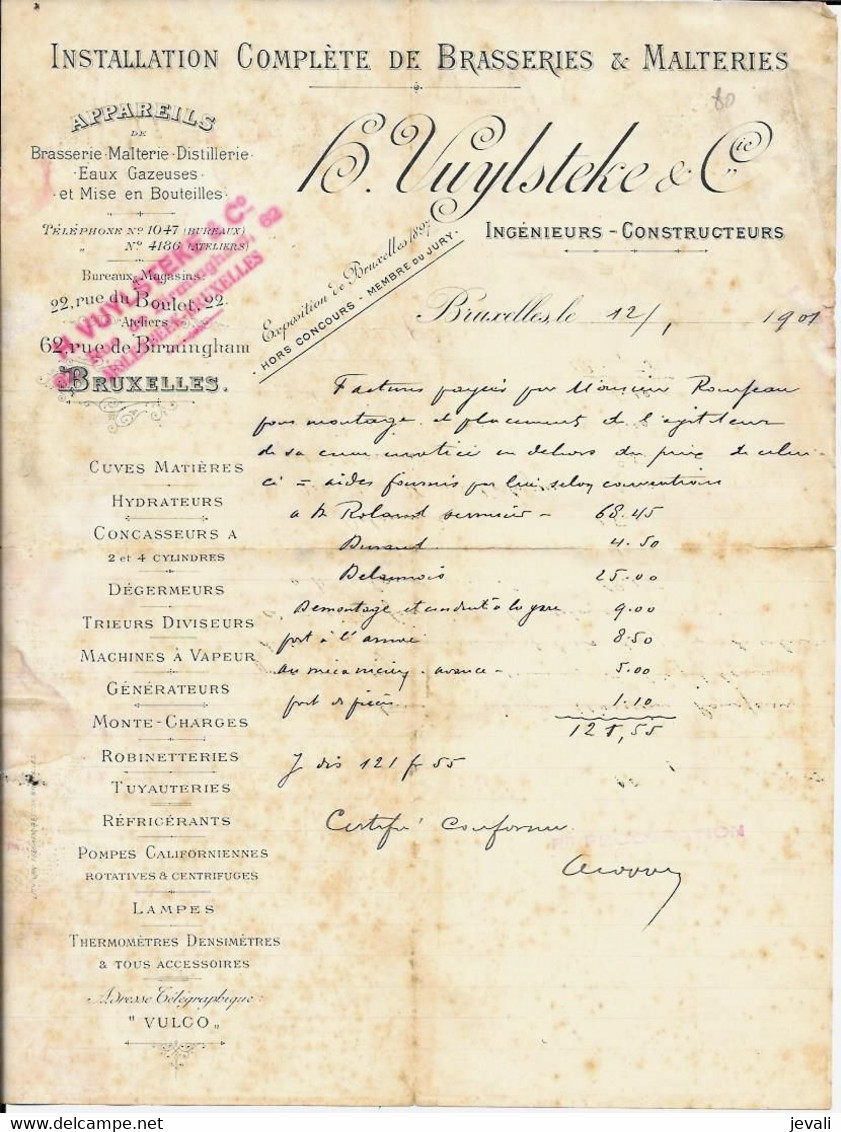 INSTALLATION COMPLÈTE DE BRASSERIES & MALTERIES
80
APPAREILS
DE
Brasserie-Malterie-Distillerie-
Eaux Gazeuses-
et Mise en Bouteilles-
TÉLÉPHONE Nº 1047 (BUREAUX)
" Nº 4186 (ATELIERS)
Bureaux, Magasins:
22, rue du Boulet, 22
Ateliers
62, rue de Birmingham
BRUXELLES.
H. VUYLSTEKE & Cº
62
BRUXELLES
H. Vuylsteke & Cie
INGÉNIEURS-CONSTRUCTEURS
Exposition de Bruxelles 1897
HORS CONCOURS - MEMBRE DU JURY.
Bruxelles, le 12/1 1901
Factures payées par Monsieur
pour montage et placement de l'agitateur
de sa cuve en dehors du prix de celui
ci = aides fournis par lui, selon conventions
a Mr Roland 68.45
Durand 4.50
" Delannois 25.00
Demontage et conduit à la gare 9.00
port à l'arrivée 8.50
au mécanicien avance - 5.00
port de pièces 1.10
121,55
Je dis 121 fr 55
Certifié conforme
CUVES MATIÈRES
HYDRATEURS
CONCASSEURS A
2 et 4 CYLINDRES
DÉGERMEURS
TRIEURS DIVISEURS
MACHINES À VAPEUR
GÉNÉRATEURS
MONTE-CHARGES
ROBINETTERIES
TUYAUTERIES
RÉFRIGÉRANTS
POMPES CALIFORNIENNES
ROTATIVES & CENTRIFUGES
LAMPES
THERMOMÈTRES DENSIMÈTRES
& TOUS ACCESSOIRES
Adresse Télégraphique:
"VULCO"
delcampe.net
jevali